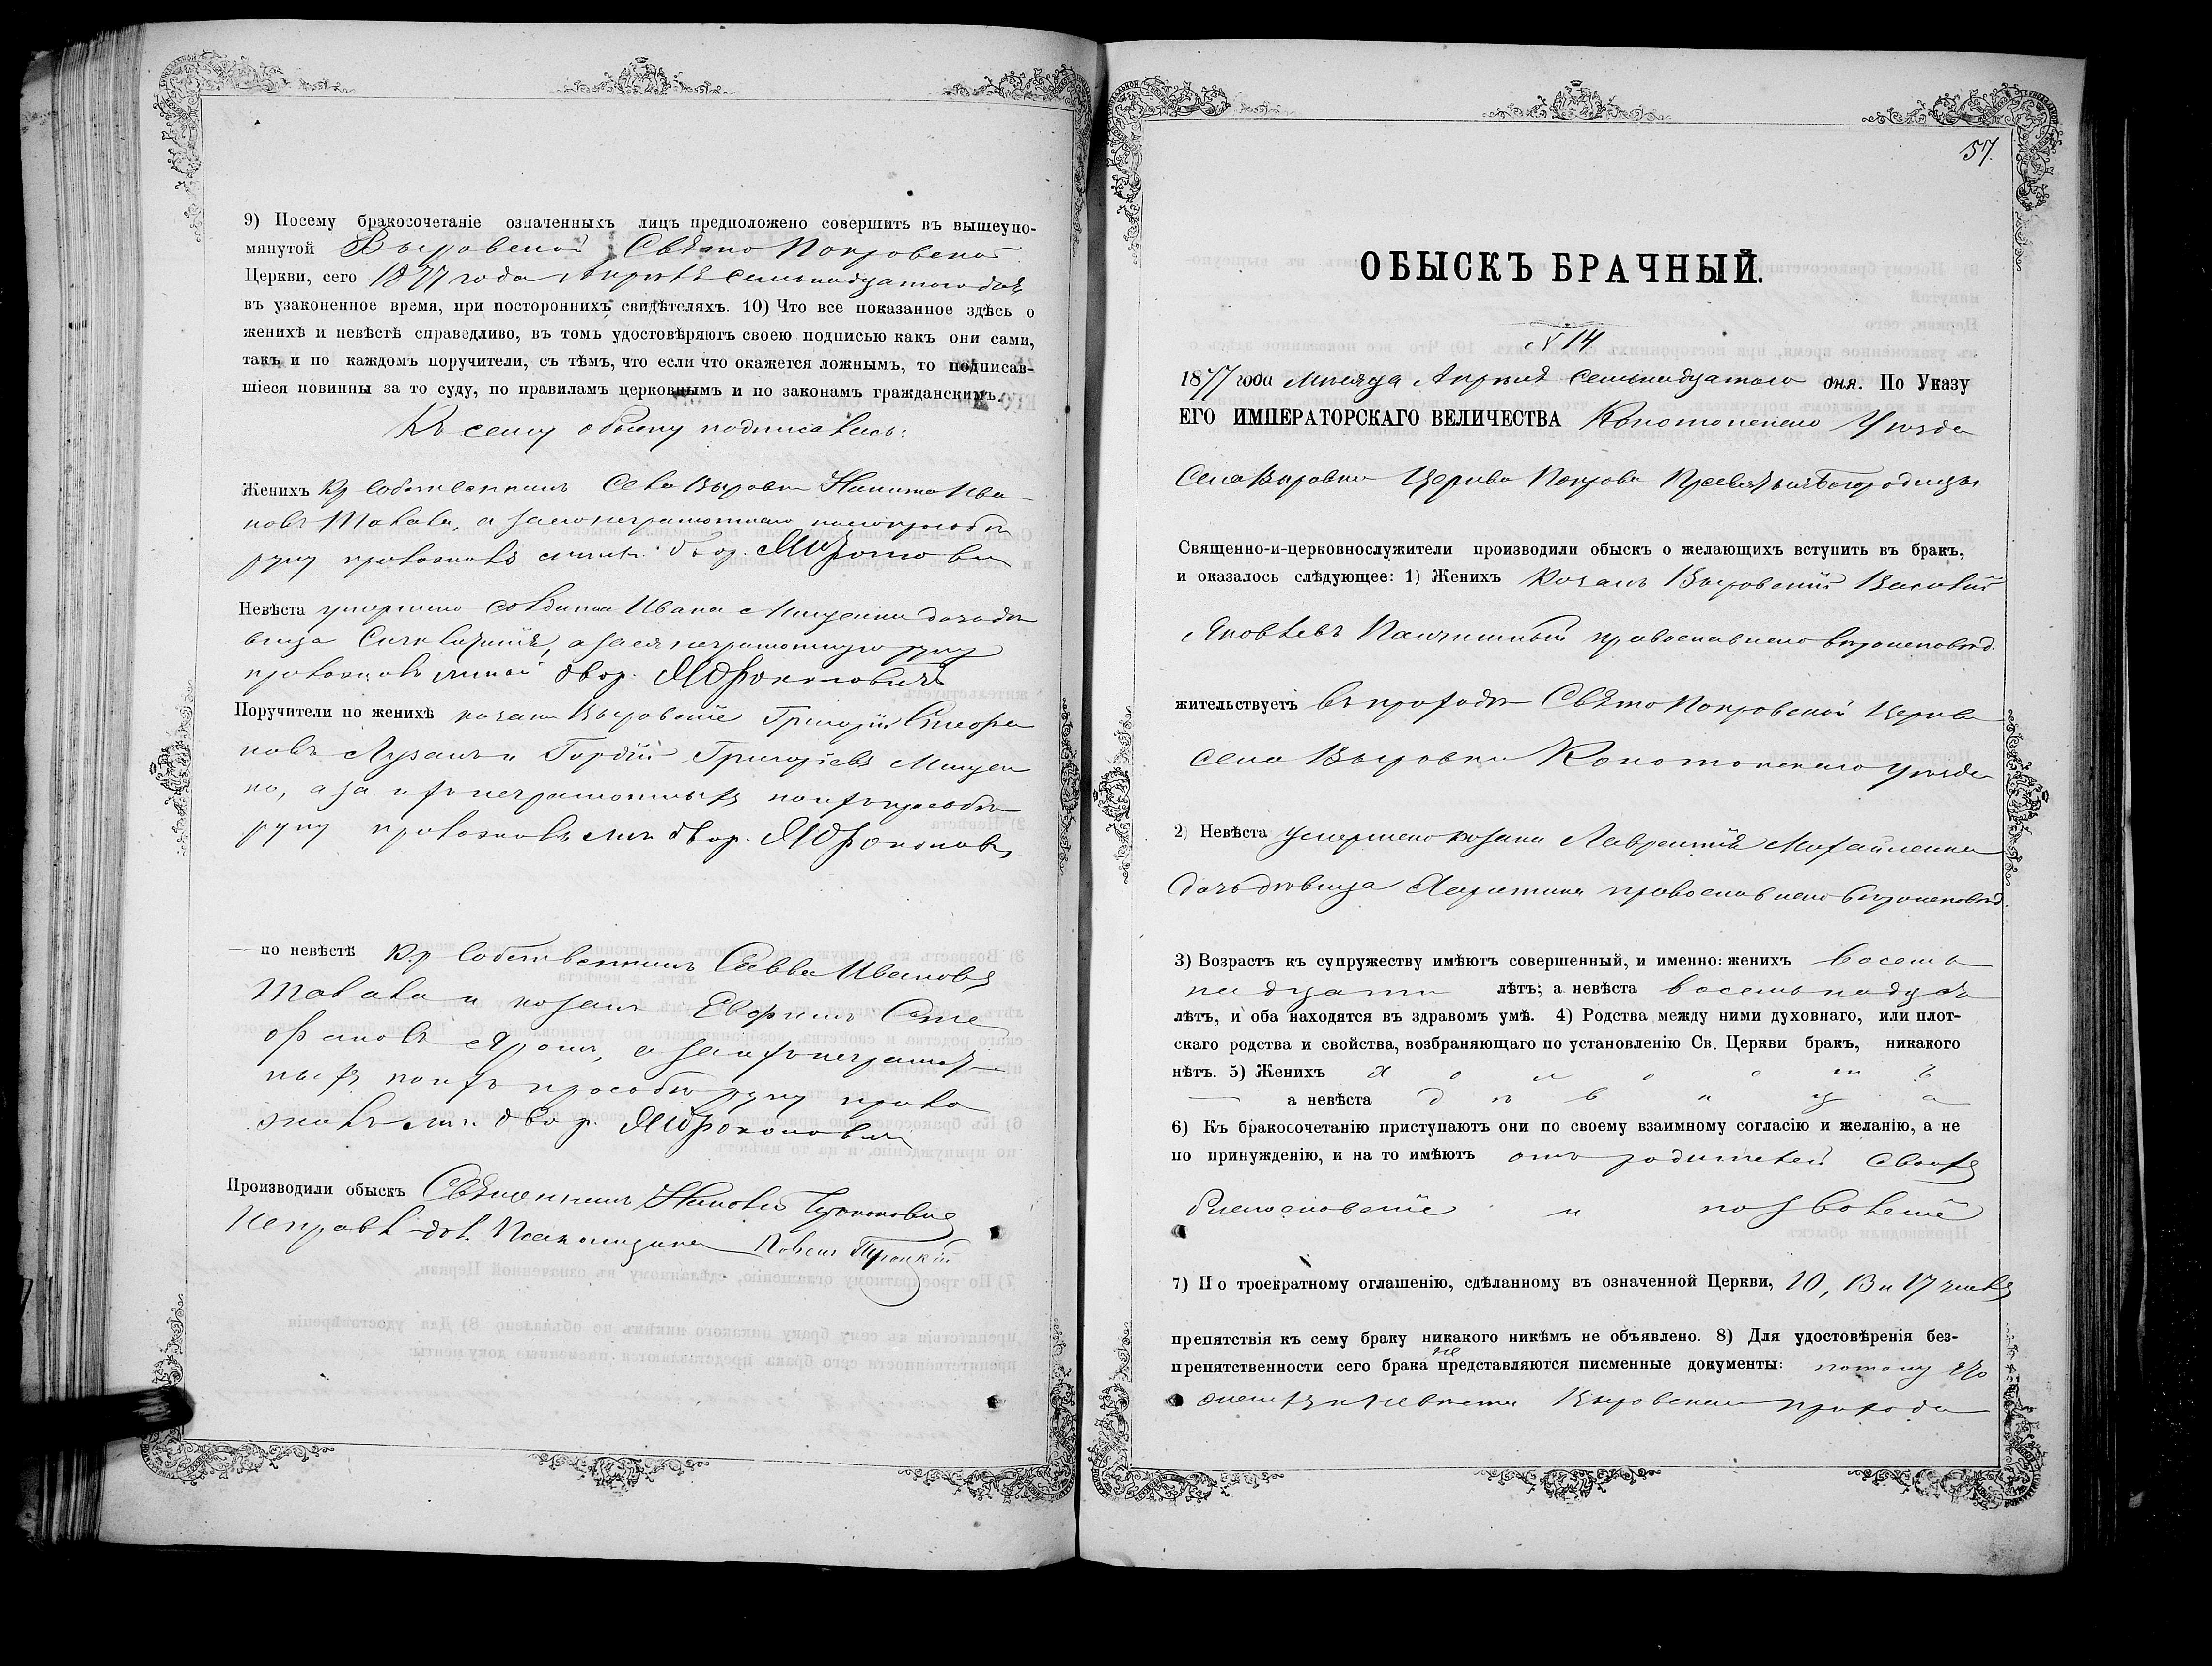 9) Посему бракосочетаніе означенныхъ лицъ предположено совершить въ вышеупо-
мянутой Выровской Свято Покровской
Церкви, сего 1877 года Апрѣля семьнадцатого дня
въ узаконенное время, при постороннихъ свидѣтеляхъ. 10) Что все показанное здѣсь о
женихѣ и невѣстѣ справедливо, въ томъ удостовѣряютъ своею подписью какъ они сами,
такъ и по каждомъ поручители, съ тѣмъ, что если что окажется ложнымъ, то подписав-
шіеся повинны за то суду, по правиламъ церковнымъ и по законамъ гражданскимъ.
Къ сему обыску подписались:
Женихъ Кр собственникъ Села Выровки Никита Ива
новъ Макала, а за него неграмотнаго по его просьбѣ
руку приложилъ двор.
Невѣста умершего солдата Ивана Мищенки дочь дѣ
вица а за нея неграмотную руку
приложилъ двор.
Поручители по женихѣ козаки Выровскіе Григорій Стефа
новъ Лузанъ и Гордій Григоріевъ Мищен
ко, а за ихъ неграмотныхъ по ихъ просьбѣ
руку приложилъ двор.
—по невѣстѣ Кр собственникъ Савва Ивановъ
и козакъ Стe
фановъ а за ихъ неграмот
ныхъ по ихъ просьбѣ руку прило
жилъ двор.
Производили обыскъ Священникъ
Исправл. дол. Псаломщика Троцкій
57.
ОБЫСКЪ БРАЧНЫЙ.
№ 14.
1877 года Мѣсяца Апрѣля семьнадцатого дня. По Указу
ЕГО ИМПЕРАТОРСКАГО ВЕЛИЧЕСТВА Конотопского Уѣзда
Села Выровки Церкви Покрова Пресвятыя Богородицы
Священно-и-церковнослужители производили обыскъ о желающихъ вступить въ бракъ,
и оказалось слѣдующее: 1) Женихъ Козакъ Выровскій Василій
Яковлевъ православнаго вѣроисповѣд.
жительствуетъ въ приходѣ Свято Покровской Церкви
села Выровки Конотопского уѣзда
2) Невѣста умершего козака Лаврентія Михайленка
дочь дѣвица Харитина православнаго вѣроисповѣд.
3) Возрастъ къ супружеству имѣютъ совершенный, и именно: женихъ восемь
надцати лѣтъ; а невѣста восемьнадцать
лѣтъ, и оба находятся въ здравомъ умѣ. 4) Родства между ними духовнаго, или плот-
скаго родства и свойства, возбраняющаго по установленію Св. Церкви бракъ, никакого
нѣтъ. 5) Женихъ х о л о с т ъ
— а невѣста д ѣ в и ц а
6) Къ бракосочетанію приступаютъ они по своему взаимному согласію и желанію, а не
по принужденію, и на то имѣютъ отъ родителей своихъ
благословеніе и позволеніе
7) По троекратному оглашенію, сдѣланному въ означенной Церкви, 10, 13 и 17 числъ
препятствія къ сему браку никакого никѣмъ не объявлено. 8) Для удостовѣренія без-
препятственности сего брака не представляются писменные документы: потому что
женихъ и невѣста Выровского прихода